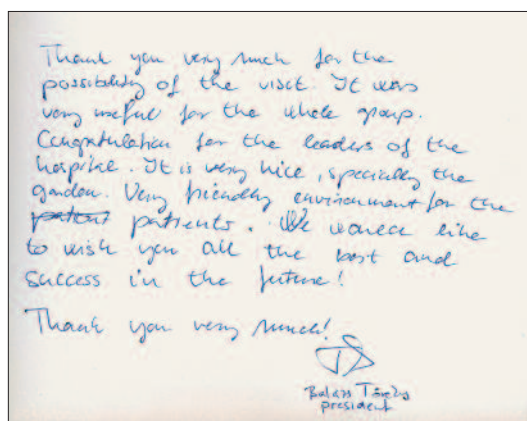 Thank you very much for the
possibility of the visit. It was
very useful for the whole group.
Congratulation for the leaders of the
hospital. It is very nice, specially the
garden. Very friendly environment for the
patients. We would like
to wish you all the best and
success in the future!
Thank you very much!
president